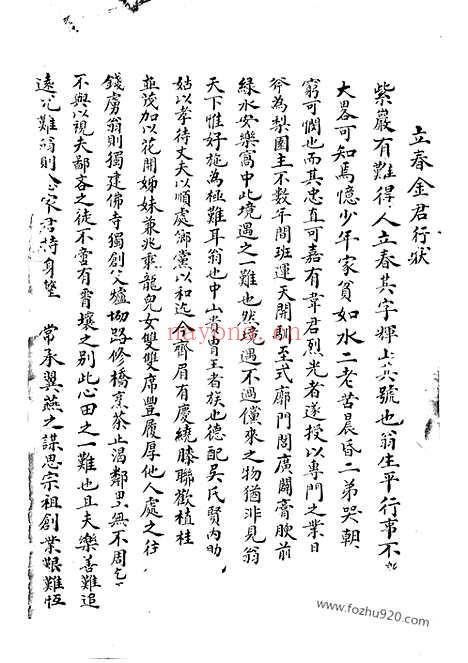 立春金君行狀
紫巖有難得人立春其字輝山其號也翁生平行事不
大畧可知焉憶少年家貧如水二老苦晨昏二弟哭朝
窮可憫也而其忠直可嘉有韋君烈光者遂授以專門之業日
爷為梨園主不數年間班運天開馴至式廓門閭廣闢膏腴前
綠水安樂窩中此境遇之一難也然境遇不過儻來之物猶非見翁
天下惟好施為極難耳翁也中山裔胄王者族也德配吳氏賢內助
姑以孝待丈夫以順處鄉黨以和迄今齊眉有慶繞膝聯歡植桂
並茂加以花開姊妹兼兆熊龍兒女雙雙席豐履厚他人處之往
錢虜翁則獨建佛寺獨創父爐坳路修橋烹茶止渴鄰里無不周
不與以視夫鄙吝之徒不啻有霄壤之別此心田之一難也且夫樂善難追
遠尤難翁則令家君持身 常承翼燕之謀思宗祖創業艱難恆
nayona.cn
www.fozhu920.com